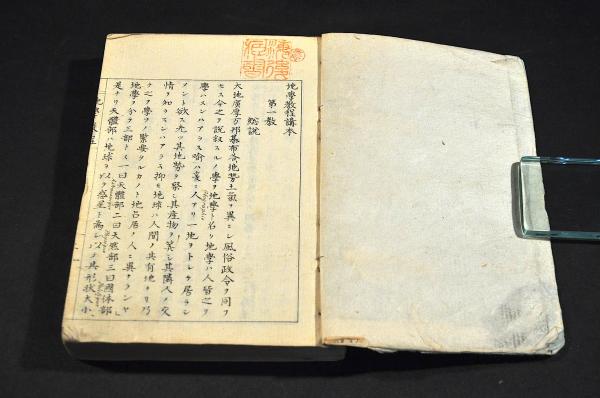 地學教程講本
第一教
總説
大地廣漠万邦碁布各地勢土氣ヲ異ニシ風俗政令ヲ同フ
セス今之ヲ説叙スルノ學ヲ地學ト名ク地學ハ人皆之ヲ
學ハスンハアラス喩ハ爰ニ人アリ一地ヲトシテ居ラン
メント欲ス先ツ其地勢ヲ察シ其産物ヲ算シ其隣人ノ交
情ヲ知ラスンハアラス抑モ地球ハ人間ノ共有地ナリ乃
之ヲ學フノ緊要タルカノト地占居ノ人ニ異ナランヤ
地學ヲ分テ三部トス一曰天體部二曰天然部三曰國体部
是ナリ天體部ハ地球ヲ以テ惑星ト爲シ以テ其形状大小